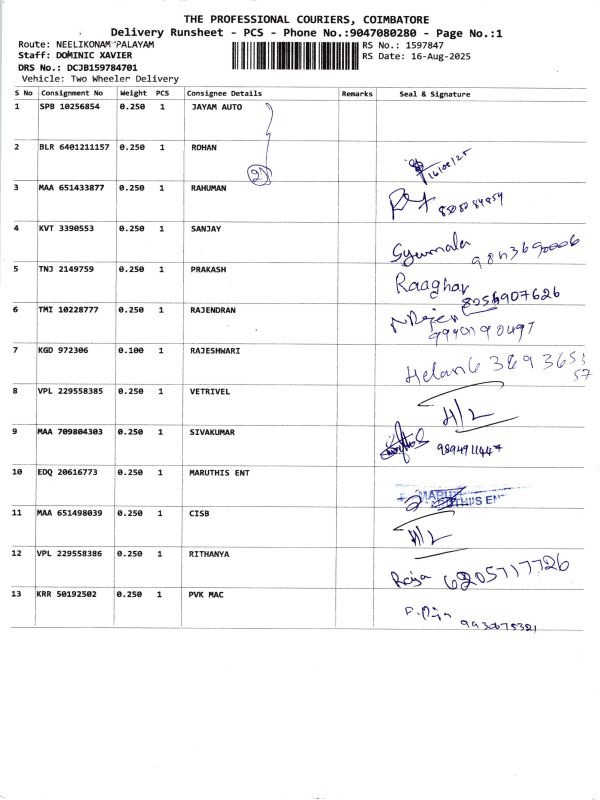 THE PROFESSIONAL COURIERS, COIMBATORE
Delivery Runsheet - PCS - Phone No.:9047080280 - Page No.:1
Route: NEELIKONAM PALAYAM
RS No.: 1597847
Staff: DOMINIC XAVIER
RS Date: 16-Aug-2025
DRS No.: DCJB159784701
Vehicle: Two Wheeler Delivery
S No Consignment No Weight PCS Consignee Details Remarks Seal & Signature
1 SPB 10256854 0.250 1 JAYAM AUTO
2 BLR 6401211157 0.250 1 ROHAN 16/08/25
2
3 MAA 651433877 0.250 1 RAHUMAN
4 KVT 3390553 0.250 1 SANJAY Syamala
5 TNJ 2149759 0.250 1 PRAKASH Raaghav 8056907626
6 TMI 10228777 0.250 1 RAJENDRAN
7 KGD 972306 0.100 1 RAJESHWARI Helan 6389365357
8 VPL 229558385 0.250 1 VETRIVEL H/L
9 MAA 709804303 0.250 1 SIVAKUMAR 9894911447
10 EDQ 20616773 0.250 1 MARUTHIS ENT
11 MAA 651498039 0.250 1 CISB H/L
12 VPL 229558386 0.250 1 RITHANYA Raja 6205717726
13 KRR 50192502 0.250 1 PVK MAC